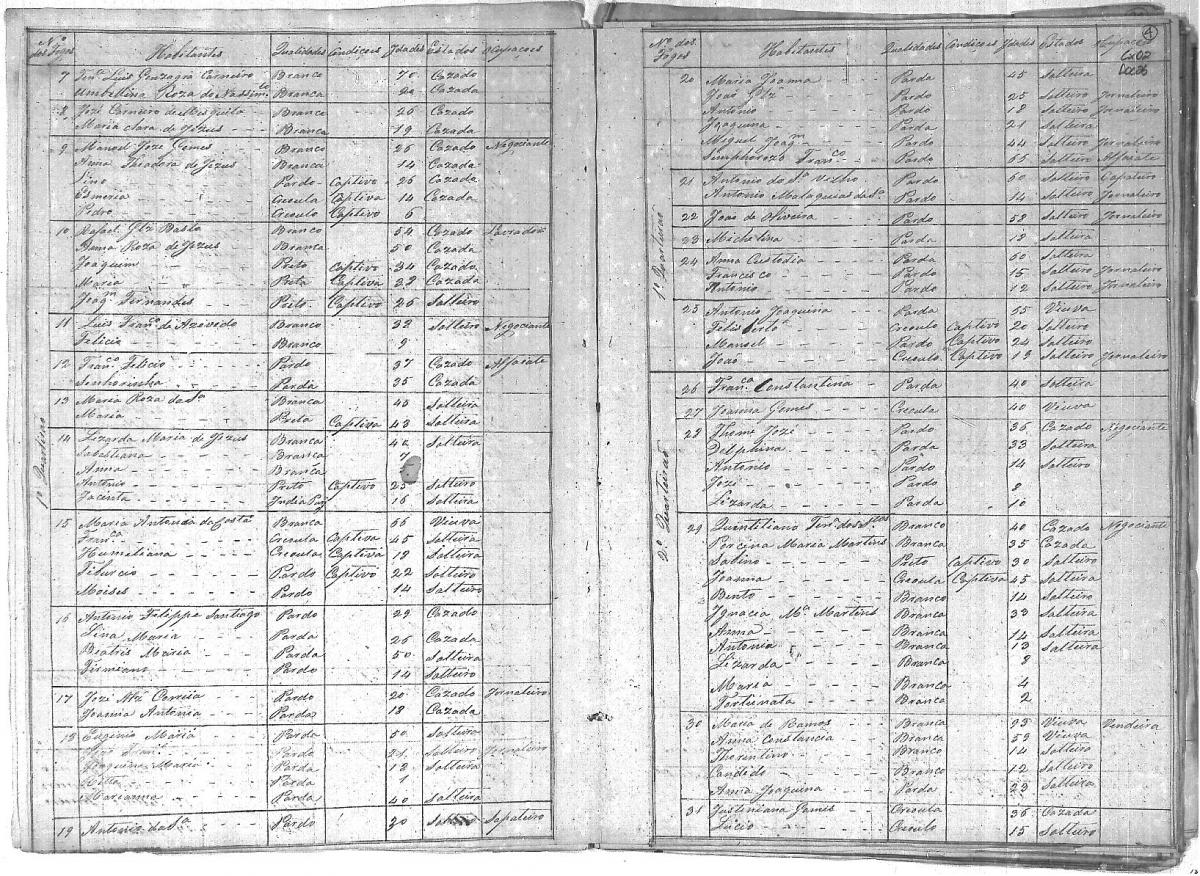 Nº dos Fogos Habitantes Qualidades Condições Idades Estados Ocupações
7 Tenᵉ Luis Gonzaga Carneiro Branco 70 Cazado
Umbellina Roza do Nassimᵗᵒ Branca 20 Cazada
8 Jozé Carneiro de Mesquita Branco 26 Cazado
Maria Clara de Jezus Branca 19 Cazada
9 Manoel Jozé Gomes Branco 26 Cazado Negociante
Anna Theadora de Jezus Branca 14 Cazada
Lino Pardo Captivo 26 Cazada
Esmeria Creoula Captiva 14 Cazada
Pedro Creoulo Captivo 6
10 Rafael Glz Basto Branco 54 Cazado Lavrador
Anna Roza de Jezus Branca 50 Cazada
Joaquim Preto Captivo 34 Cazado
Maria Preta Captiva 22 Cazada
Joaqᵐ Fernandes Preto Captivo 26 Solteiro
11 Luis Franᶜᵒ de Azevedo Branco 32 Solteiro Negociante
Felicio Branco 9
12 Franᶜᵒ Felicio Pardo 37 Cazado Alfaiate
Senhorinha Parda 35 Cazada
13 Maria Roza da Sᵃ Branca 45 Solteira
Maria Preta Captiva 43 Solteira
1º Quarteirão
14 Lizarda Maria de Jezus Branca 40 Solteira
Sabastiana Branca 7
Anna Branca
Antonio Preto Captivo 25 Solteiro
Jacinta India 16 Solteira
15 Maria Antonia da Costa Branca 66 Viuva
Franᶜᵃ Creoula Captiva 45 Solteira
Humeliana Creoula Captiva 12 Solteira
Tiburcio Pardo Captivo 22 Solteiro
Moises Pardo 14 Solteiro
16 Antonio Felippe Santiago Pardo 29 Cazado
Lina Maria Parda 26 Cazada
Beatris Maria Parda 50 Solteira
Firmiano Pardo 14 Solteiro
17 Jozé Alz Correia Pardo 20 Cazado Jornaleiro
Joanna Antonia Parda 18 Cazada
18 Eugenia Maria Parda 60 Solteira
Franᶜᵒ Pardo 21 Solteiro Jornaleiro
Joaquina Maria Parda 18 Solteira
Parda 1
Marianna Parda 40 Solteira
19 Antonio da Sᵃ Pardo 30 Sapateiro
4
Cx 02
Doc 06
Nº dos Fogos Habitantes Qualidades Condições Idades Estados Ocupações
20 Maria Joanna Parda 45 Solteira
João Glz Pardo 25 Solteiro Jornaleiro
Antonio Pardo 18 Solteiro Jornaleiro
Joaquina Parda 21 Solteira
Miguel Joaqᵐ Pardo 44 Solteiro Jornaleiro
Simphorozo Franᶜᵒ Pardo 55 Solteiro Alfaiate
21 Antonio da Sᵃ Velho Pardo 60 Solteiro Capateiro
Antonio Malaquias da Sᵃ Pardo 14 Solteiro Jornaleiro
22 João de Oliveira Pardo 58 Solteiro Jornaleiro
1º Quarteirão
23 Michelina Parda 19 Solteira
24 Anna Custodia Parda 60 Solteira
Francisco Pardo 15 Solteiro Jornaleiro
Antonio Pardo 12 Solteiro Jornaleiro
25 Antonia Joaquina Parda 55 Viuva
Creoulo Captivo 20 Solteiro
Manoel Pardo Captivo 24 Solteiro
João Creoulo Captivo 19 Solteiro Jornaleiro
26 Franᶜᵃ Constantina Parda 40 Solteira
27 Joanna Gomes Creoula 40 Viuva
28 Thomé Jozé Pardo 36 Cazado Negociante
Delphina Parda 33 Solteira
Antonio Pardo 14 Solteiro
Jozé Pardo 8
Lizarda Parda 10
2º Quarteirão
29 Quintiliano Ferrᵃ dos Stos Branco 40 Cazado Negociante
Porcina Maria Martins Branca 35 Cazada
Sabino Preto Captivo 30 Solteiro
Joanna Creoula Captiva 45 Solteira
Bento Branco 14 Solteiro
Ignacia Mᵃ Martins Branca 33 Solteira
Anna Branca 14 Solteira
Antonia Branca 13 Solteira
Lizarda Branca 9
Maria Branca 4
Fortunata Branca 2
30 Maria de Ramos Branca 25 Viuva Vendeira
Anna Constancia Branca 52 Viuva
Florentino Branco 14 Solteiro
Candido Branco 12 Solteiro
Anna Joaquina Parda 23 Solteira
31 Justiniana Gomes Creoula 36 Cazada
Lucio Creoulo 15 Solteiro